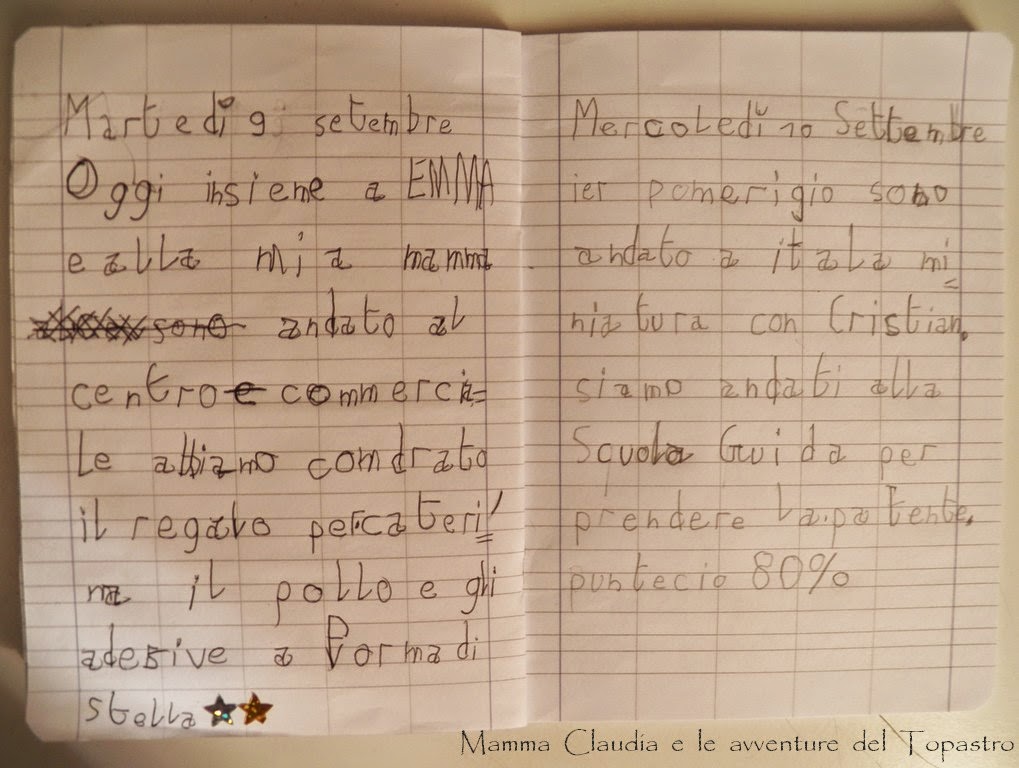 Martedì 9 setembre
Oggi insieme a EMMA
e alla mia mamma
sono andato al
centro e commercia=
le abbiamo comdrato
il regalo per cateri=
na il pollo e gli
adesive a Forma di
stella
Mercoledì 10 Settembre
ier pomerigio sono
andato a itala mi=
niatura con Cristian.
siamo andati alla
Scuola Guida per
prendere la patente.
puntecio 80%
Mamma Claudia e le avventure del Topastro